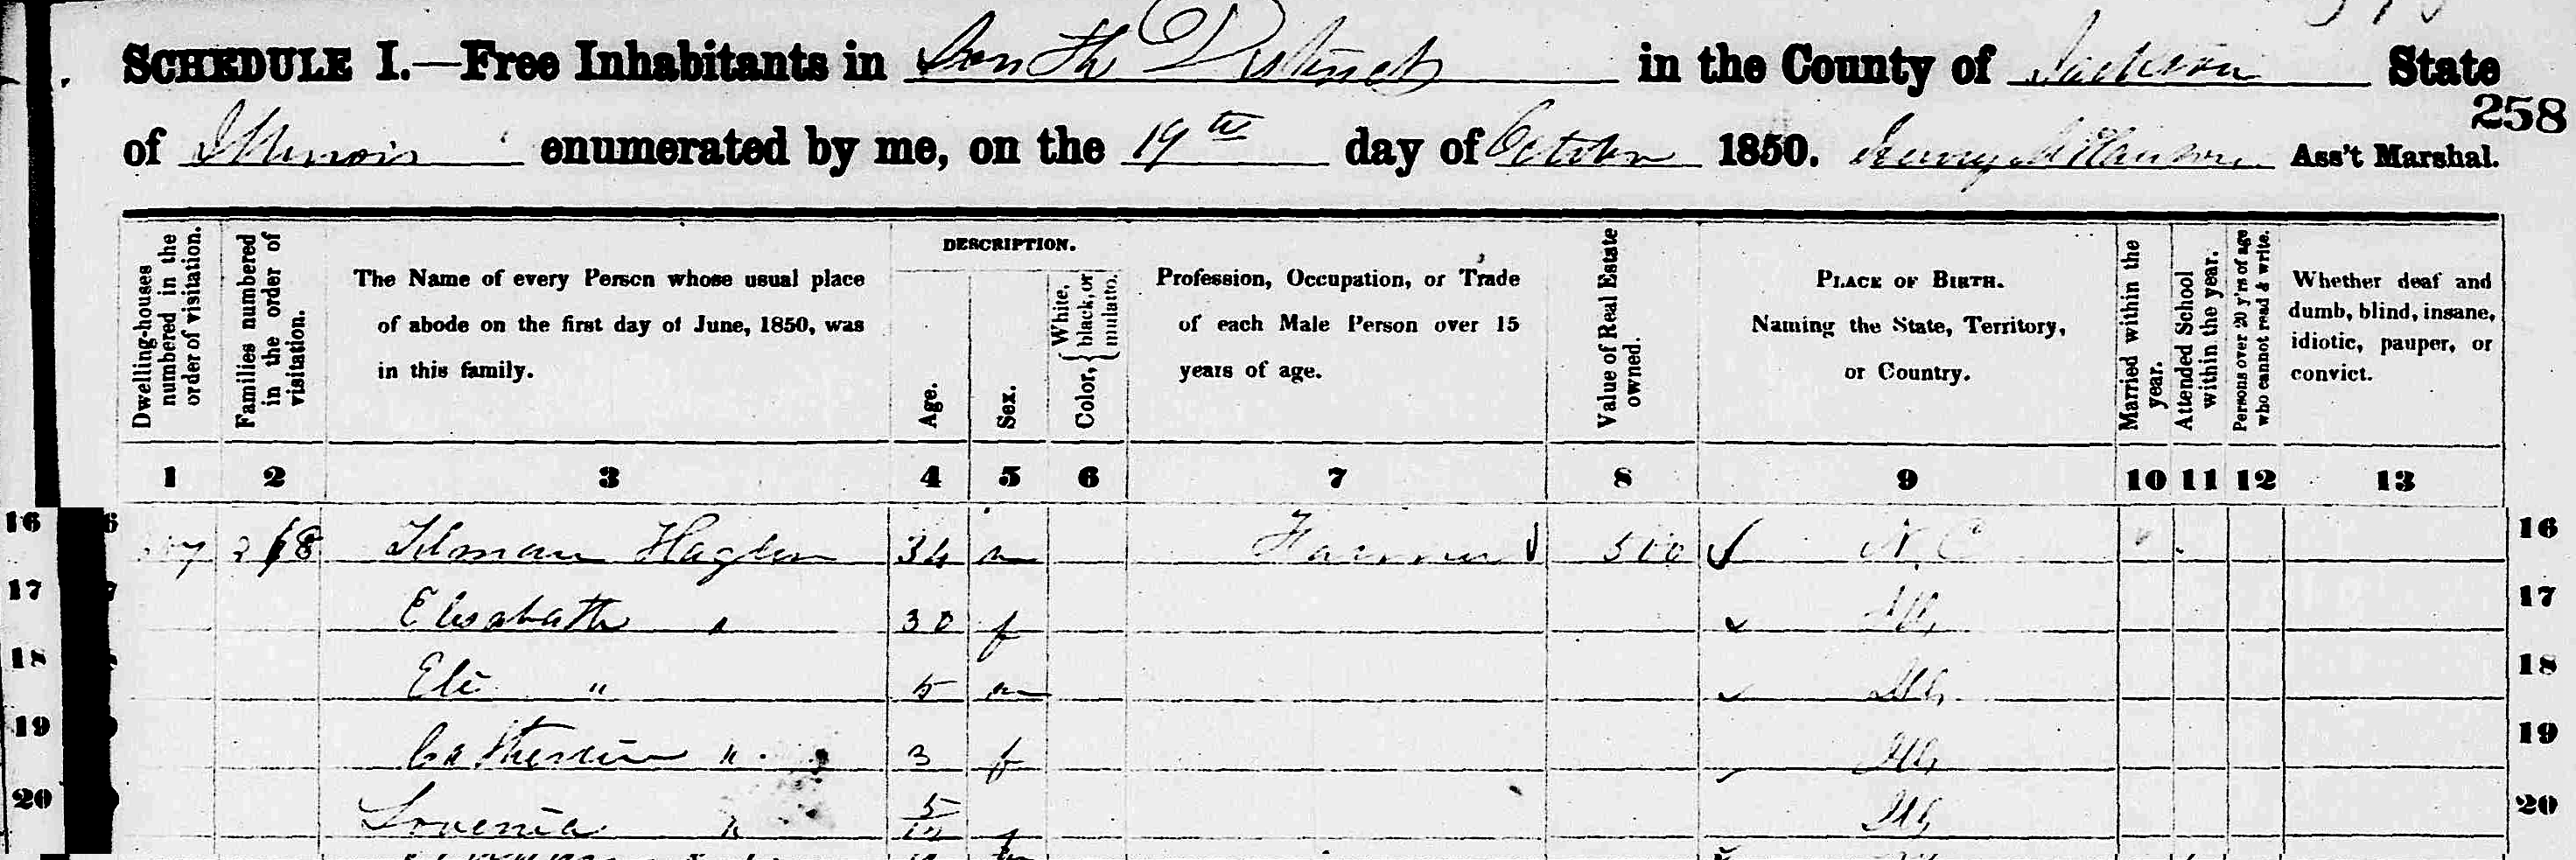 SCHEDULE I.—Free Inhabitants in South District in the County of Jackson State
258
of Illinois enumerated by me, on the 19th day of October 1850. Ass't Marshal.
Dwelling-houses numbered in the order of visitation.
Families numbered in the order of visitation.
The Name of every Person whose usual place of abode on the first day of June, 1850, was in this family.
DESCRIPTION.
Age.
Sex.
Color, { White, black, or mulatto.
Profession, Occupation, or Trade of each Male Person over 15 years of age.
Value of Real Estate owned.
PLACE OF BIRTH. Naming the State, Territory, or Country.
Married within the year.
Attended School within the year.
Persons over 20 y'rs of age who cannot read & write.
Whether deaf and dumb, blind, insane, idiotic, pauper, or convict.
1 2 3 4 5 6 7 8 9 10 11 12 13
16 218 Tilman Haglen 34 m Farmer 500 N.C 16
17 Elisabath " 30 f Ill 17
18 Eli " 5 m Ills 18
19 Catherin " 3 f Ills 19
20 Lovenia " 5/12 f Ills 20